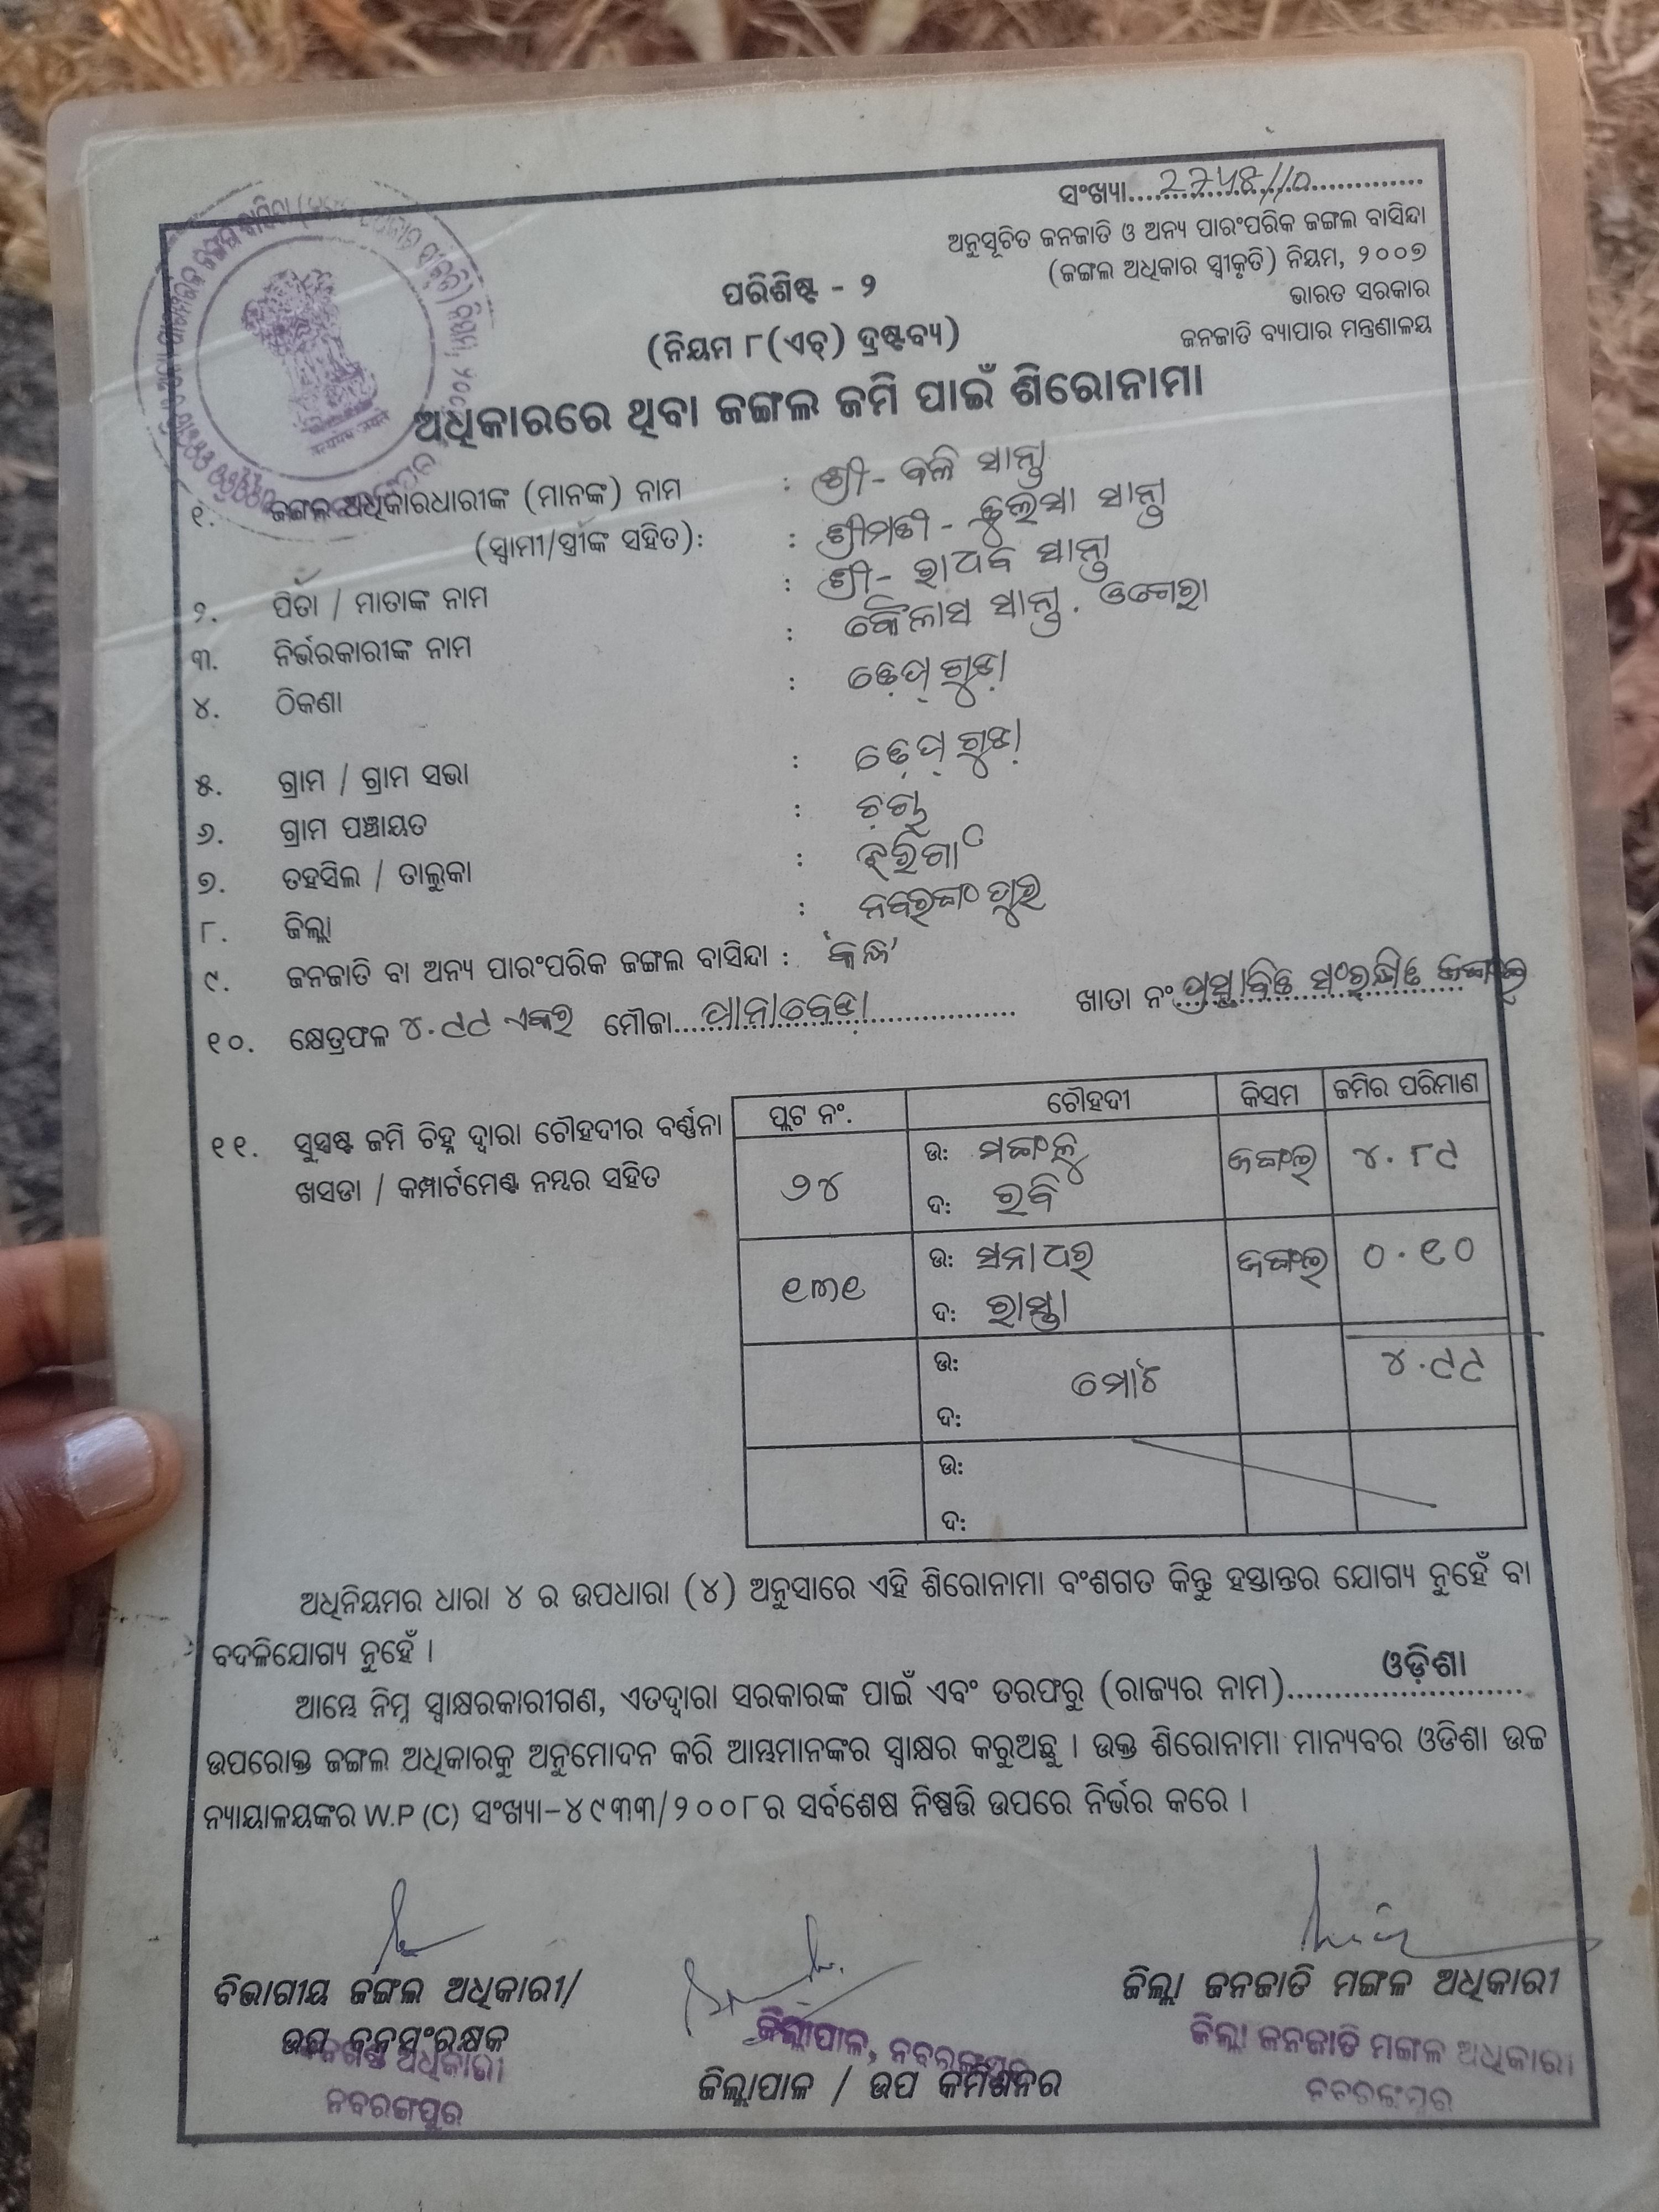 ସଂଖ୍ୟା
ଅନୁସୂଚିତ ଜନଜାତି ଓ ଅନ୍ୟ ପାରଂପରିକ ଜଙ୍ଗଲ ବାସିନ୍ଦା
(ଜଙ୍ଗଲ ଅଧିକାର ସ୍ୱୀକୃତି) ନିୟମ, ୨୦୦୭
ଭାରତ ସରକାର
ଜନଜାତି ବ୍ୟାପାର ମନ୍ତ୍ରଣାଳୟ
ପରିଶିଷ୍ଟ - ୨
(ନିୟମ ୮(ଏଚ୍) ଦ୍ରଷ୍ଟବ୍ୟ)
ଅଧିକାରରେ ଥିବା ଜଙ୍ଗଲ ଜମି ପାଇଁ ଶିରୋନାମା
୧. ଜଙ୍ଗଲ ଅଧିକାରଧାରୀଙ୍କ (ମାନଙ୍କ) ନାମ : ଶ୍ରୀ- ବଳି ସାନ୍ତା
(ସ୍ୱାମୀ/ସ୍ତ୍ରୀଙ୍କ ସହିତ): : ଶ୍ରୀମତୀ - ତୁଲସା ସାନ୍ତା
୨. ପିତା / ମାତାଙ୍କ ନାମ : ଶ୍ରୀ- ସାନ୍ତା
୩. ନିର୍ଭରକାରୀଙ୍କ ନାମ : କୈଳାସ ସାନ୍ତା. ଓଗେରା
୪. ଠିକଣା :
୫. ଗ୍ରାମ / ଗ୍ରାମ ସଭା :
୬. ଗ୍ରାମ ପଞ୍ଚାୟତ :
୭. ତହସିଲ / ତାଲୁକା : ଝରିଗାଁ
୮. ଜିଲ୍ଲା : ନବରଙ୍ଗପୁର
୯. ଜନଜାତି ବା ଅନ୍ୟ ପାରଂପରିକ ଜଙ୍ଗଲ ବାସିନ୍ଦା : 'କନ୍ଧ'
୧୦. କ୍ଷେତ୍ରଫଳ ୪.୯୯ ଏକର ମୌଜା ପାନାବେଡ଼ା ଖାତା ନଂ ପ୍ରସ୍ତାବିତ ସଂରକ୍ଷିତ ଜଙ୍ଗଲ
୧୧. ସୁସ୍ପଷ୍ଟ ଜମି ଚିହ୍ନ ଦ୍ୱାରା ଚୌହଦୀର ବର୍ଣ୍ଣନା
ଖସଡା / କମ୍ପାର୍ଟମେଣ୍ଟ ନମ୍ବର ସହିତ
ପ୍ଲଟ ନଂ. ଚୌହଦୀ କିସମ ଜମିର ପରିମାଣ
୭୪ ଉ: ମଙ୍ଗଳୁ ଜଙ୍ଗଲ ୪.୮୯
ଦ: ରବି
୧୩୧ ଉ: ସନାଧର ଜଙ୍ଗଲ ୦.୧୦
ଦ: ରାସ୍ତା
ଉ: ମୋଟ ୪.୯୯
ଦ:
ଉ:
ଦ:
ଅଧିନିୟମର ଧାରା ୪ ର ଉପଧାରା (୪) ଅନୁସାରେ ଏହି ଶିରୋନାମା ବଂଶଗତ କିନ୍ତୁ ହସ୍ତାନ୍ତର ଯୋଗ୍ୟ ନୁହେଁ ବା
ବଦଳିଯୋଗ୍ୟ ନୁହେଁ ।
ଆମ୍ଭେ ନିମ୍ନ ସ୍ୱାକ୍ଷରକାରୀଗଣ, ଏତଦ୍ୱାରା ସରକାରଙ୍କ ପାଇଁ ଏବଂ ତରଫରୁ (ରାଜ୍ୟର ନାମ) ଓଡ଼ିଶା
ଉପରୋକ୍ତ ଜଙ୍ଗଲ ଅଧିକାରକୁ ଅନୁମୋଦନ କରି ଆମ୍ଭମାନଙ୍କର ସ୍ୱାକ୍ଷର କରୁଅଛୁ । ଉକ୍ତ ଶିରୋନାମା ମାନ୍ୟବର ଓଡିଶା ଉଚ୍ଚ
ନ୍ୟାୟାଳୟଙ୍କର W.P (C) ସଂଖ୍ୟା-୪୯୩୩/୨୦୦୮ର ସର୍ବଶେଷ ନିଷ୍ପତ୍ତି ଉପରେ ନିର୍ଭର କରେ ।
ବିଭାଗୀୟ ଜଙ୍ଗଲ ଅଧିକାରୀ/
ଉପ ବନସଂରକ୍ଷକ
ଅଧିକାରୀ
ନବରଙ୍ଗପୁର
ଜିଲ୍ଲାପାଳ, ନବରଙ୍ଗପୁର
ଜିଲ୍ଲାପାଳ / ଉପ କମିଶନର
ଜିଲ୍ଲା ଜନଜାତି ମଙ୍ଗଳ ଅଧିକାରୀ
ଜିଲ୍ଲା ଜନଜାତି ମଙ୍ଗଳ ଅଧିକାରୀ
ନବରଙ୍ଗପୁର